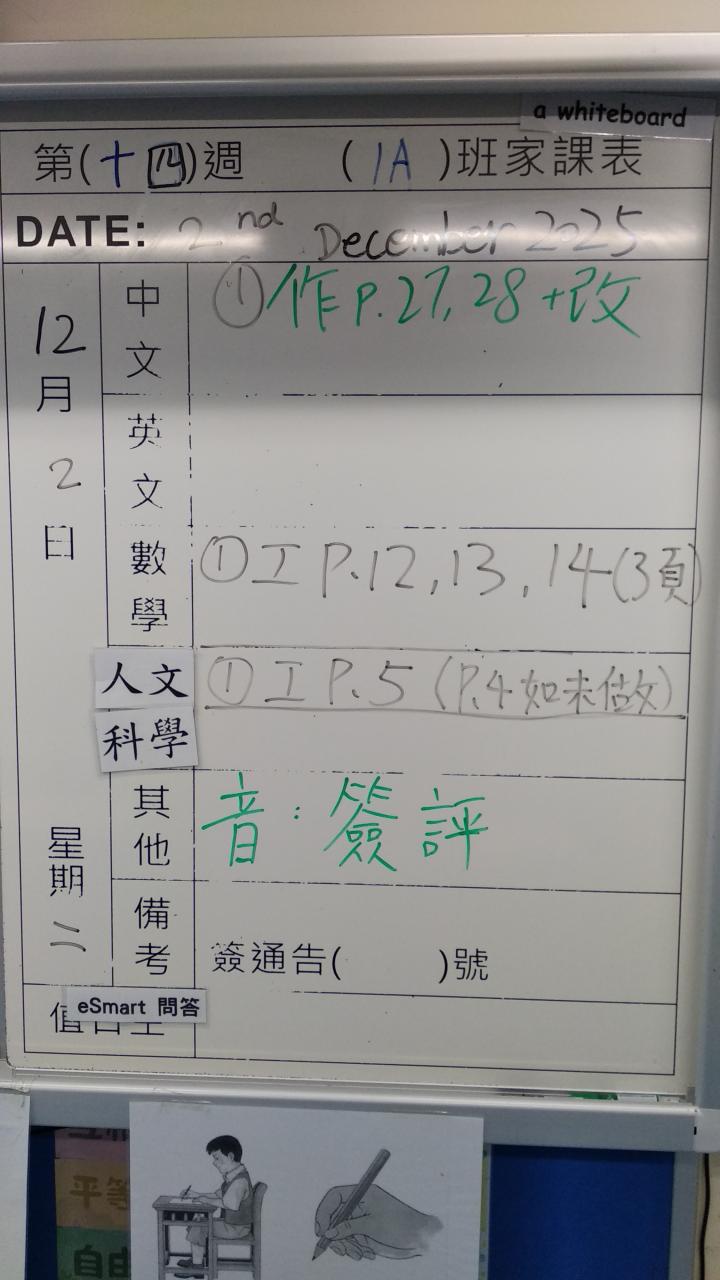 a whiteboard
第(十四)週 (1A)班家課表
DATE: 2nd December 2025
12月2日 星期二
中文 ①作P.27, 28+改
英文
數學 ①工P.12, 13, 14(3頁)
人文
科學 ①工P.5 (P.4如未做)
其他 音:簽評
備考 簽通告( )號
eSmart 問答
平等
自由